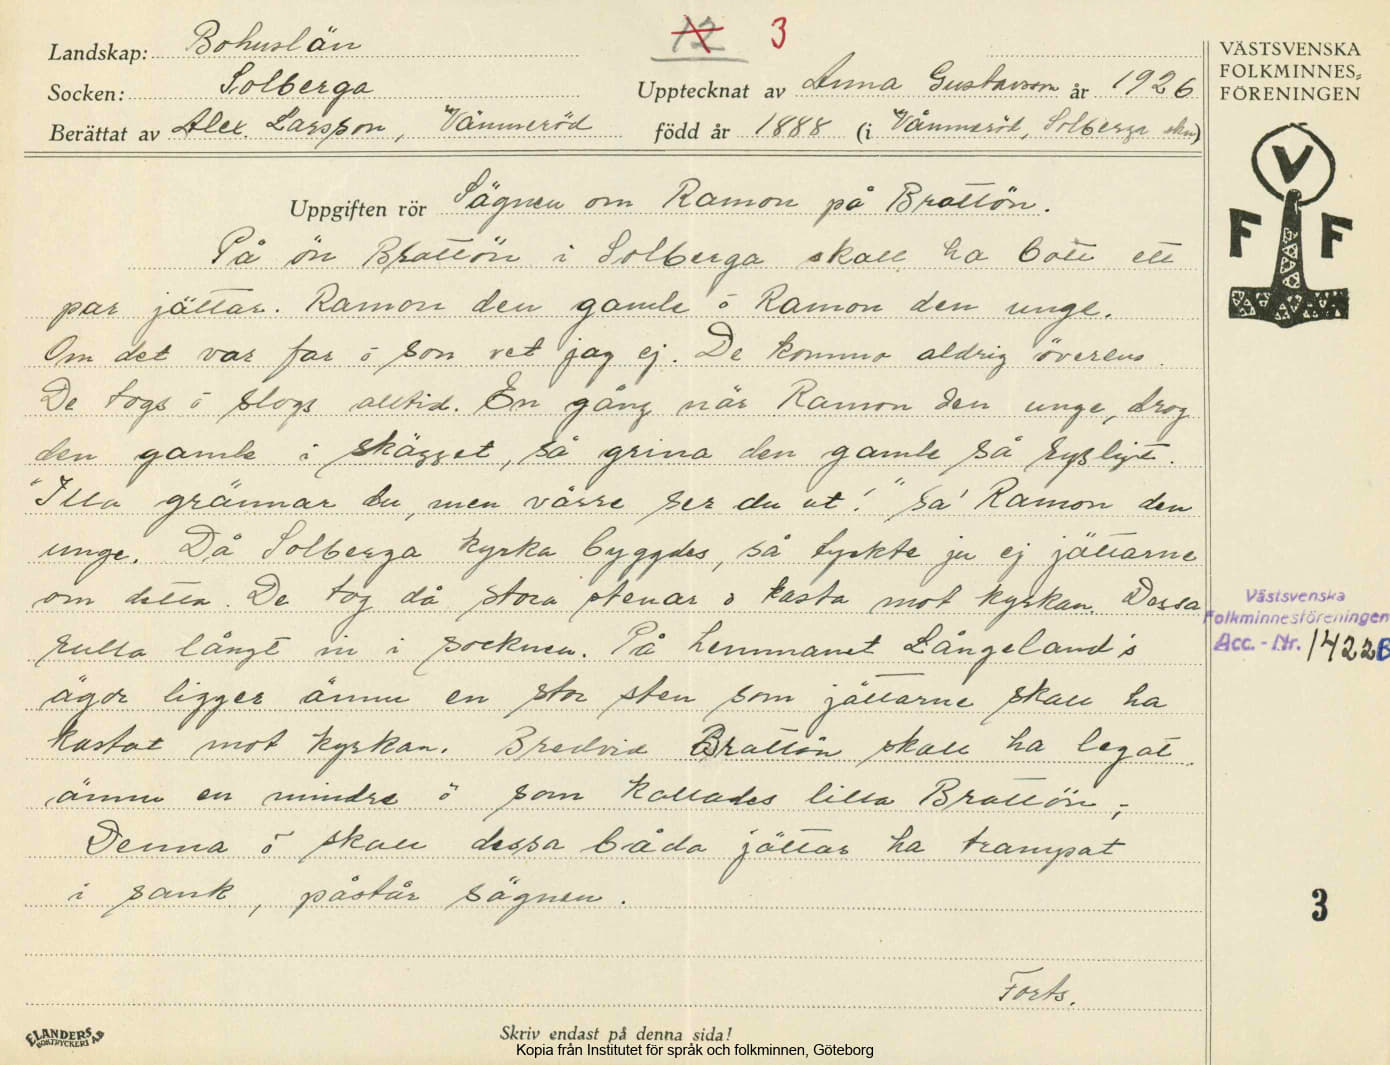 12 3
Landskap: Bohuslän
Socken: Solberga
Upptecknat av Anna Gustavson år 1926
Berättat av Alex. Larsson, Vämmeröd född år 1888 (i Vämmeröd, Solberga skn)
VÄSTSVENSKA
FOLKMINNES-
FÖRENINGEN
V
F F
Uppgiften rör Sägnen om Ramon på Brattön.
På ön Brattön i Solberga skall ha bott ett
par jättar. Ramon den gamle o Ramon den unge.
Om det var far o son vet jag ej. De kommo aldrig överens.
De togs o slogs alltid. En gång när Ramon den unge, drog
den gamle i skägget, så grina den gamle så rysligt.
"Illa grännar du, men värre ser du ut!" sa' Ramon den
unge. Då Solberga kyrka byggdes, så tyckte ju ej jättarne
om detta. De tog då stora stenar o kasta mot kyrkan. Dessa
rulla långt in i socknen. På hemmanet Långeland's
ägor ligger ännu en stor sten som jättarne skall ha
kastat mot kyrkan. Bredvid Brattön skall ha legat
ännu en mindre ö som kallades lilla Brattön;
Denna ö skall dessa båda jättar ha trampat
i sank, påstår sägnen.
Forts.
Västsvenska
Folkminnesföreningen
Acc.-Nr. 1422B
3
ELANDERS
BOKTRYCKERI AB
Skriv endast på denna sida!
Kopia från Institutet för språk och folkminnen, Göteborg